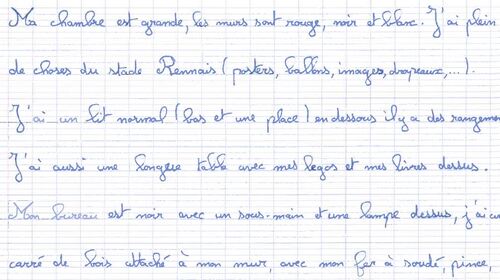 Ma chambre est grande, les murs sont rouge, noir et blanc. J'ai plein
de choses du stade Rennais (posters, ballons, images, drapeaux,...).
J'ai un lit normal (bas et une place) en dessous il y a des rangemen
J'ai aussi une longue table avec mes legos et mes livres dessus.
Mon bureau est noir avec un sous-main et une lampe dessus, j'ai u
carré de bois attaché à mon mur, avec mon fer à soudé, pince,